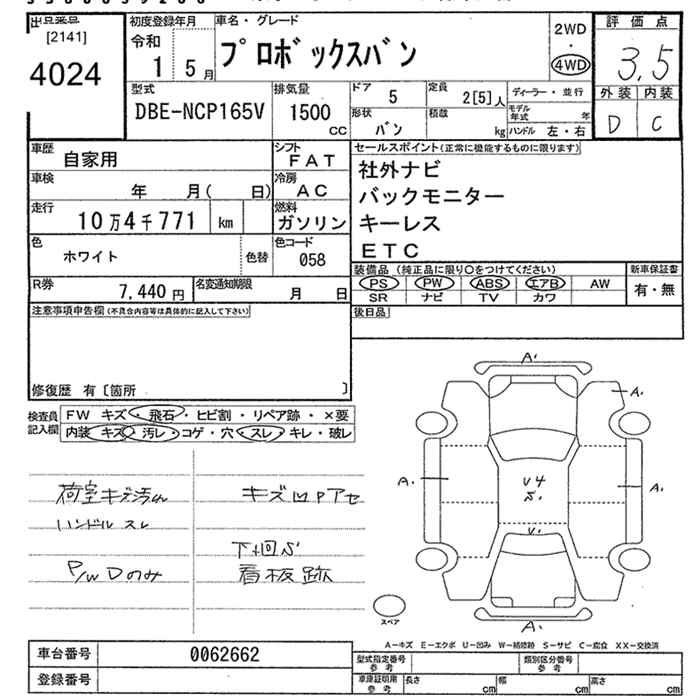 出品番号
[2141]
4024
初度登録年月
令和
1 5月
車名・グレード
プロボックスバン
2WD
・
4WD
評価点
3.5
外装 内装
D C
型式
DBE-NCP165V
排気量
1500
CC
ドア
5
定員
2[5]人
ディーラー・並行
形状
バン
積載
kg
モデル年式 年
ハンドル 左・右
車歴
自家用
シフト
FAT
車検
年 月( 日)
冷房
AC
走行
10万4千771 km
燃料
ガソリン
色
ホワイト
色替
色コード
058
R券
7,440円
名変通知期限
月 日
セールスポイント(正常に機能するものに限ります)
社外ナビ
バックモニター
キーレス
ETC
装備品 (純正品に限り○をつけてください)
新車保証書
PS PW ABS エアB AW
有・無
SR ナビ TV カワ
後日品
注意事項申告欄(不具合内容等は具体的に記入して下さい)
修復歴 有〔箇所 〕
検査員記入欄
FW キズ・飛石・ヒビ割・リペア跡・×要
内装 キズ・汚レ・コゲ・穴・スレ・キレ・破レ
荷室キズ汚れ
ハンドル スレ
P/W Dのみ
キズ凹Pアセ
下廻S
看板跡
A.
A.
A.
A.
U4
S.
U.
A.
スペア
A-キズ E-エクボ U-凹み W-補修跡 S-サビ C-腐食 XX-交換済
車台番号
0062662
登録番号
型式指定番号 参考
類別区分番号 参考
車庫証明用 参考
長さ cm
幅 cm
高さ cm